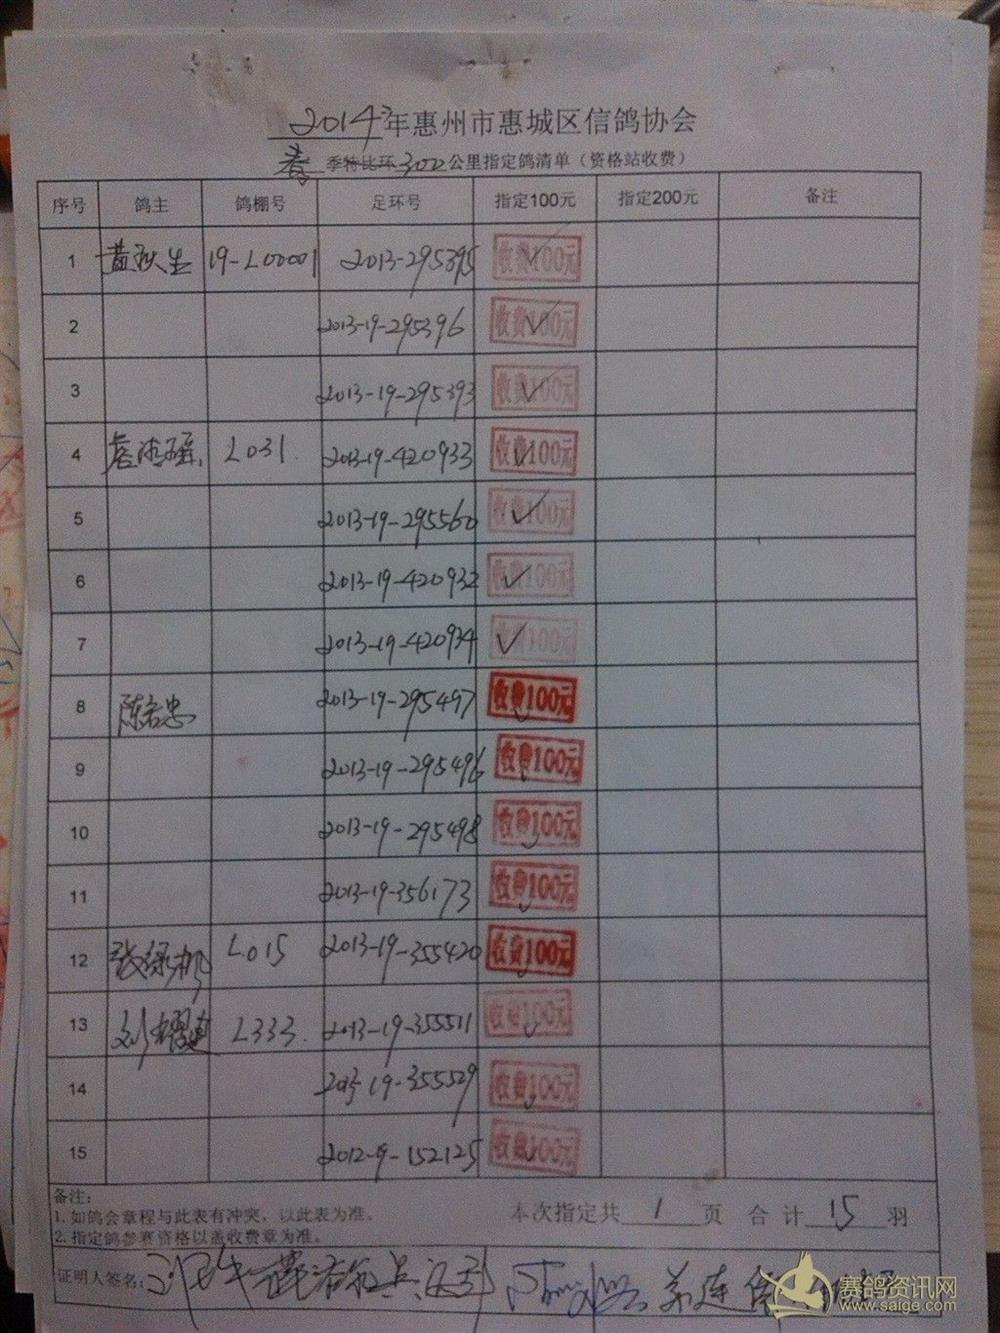 2014年惠州市惠城区信鸽协会
春 季特比环300公里指定鸽清单（资格站收费）
序号 鸽主 鸽棚号 足环号 指定100元 指定200元 备注
1 黄秋生 19-L00001 2013-295395 收费100元
2 2013-19-295396 收费100元
3 2013-19-295393 收费100元
4 L031. 2013-19-420933 收费100元
5 2013-19-295560 收费100元
6 2013-19-420932 收费100元
7 2013-19-420934 收费100元
8 陈若忠 2013-19-295497 收费100元
9 2013-19-295496 收费100元
10 2013-19-295498 收费100元
11 2013-19-356173 收费100元
12 L015 2013-19-355420 收费100元
13 L333. 2013-19-355511 收费100元
14 2013-19-355529 收费100元
15 2012-19-152125 收费100元
备注：
1. 如鸽会章程与此表有冲突，以此表为准。
2. 指定鸽参赛资格以盖收费章为准。
本次指定共 1 页 合计 15 羽
证明人签名：
赛鸽资讯网
www.saige.com